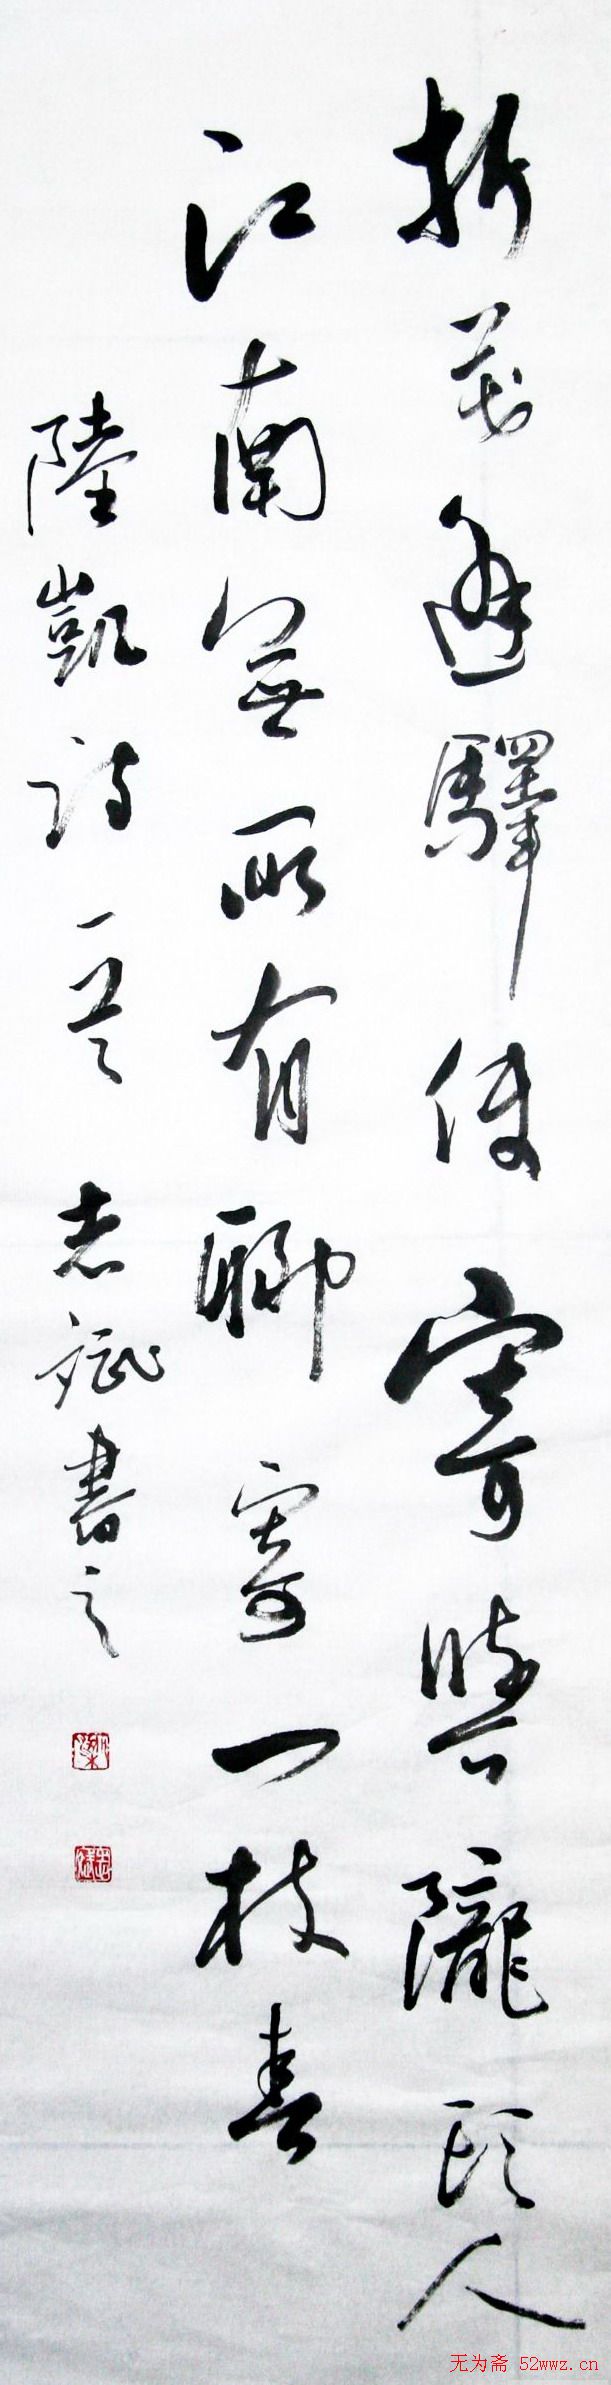 折花逢驛使寄與隴頭人
江南無所有聊寄一枝春
陸凱詩一首 志斌書之
无为斋 52wwz.cn